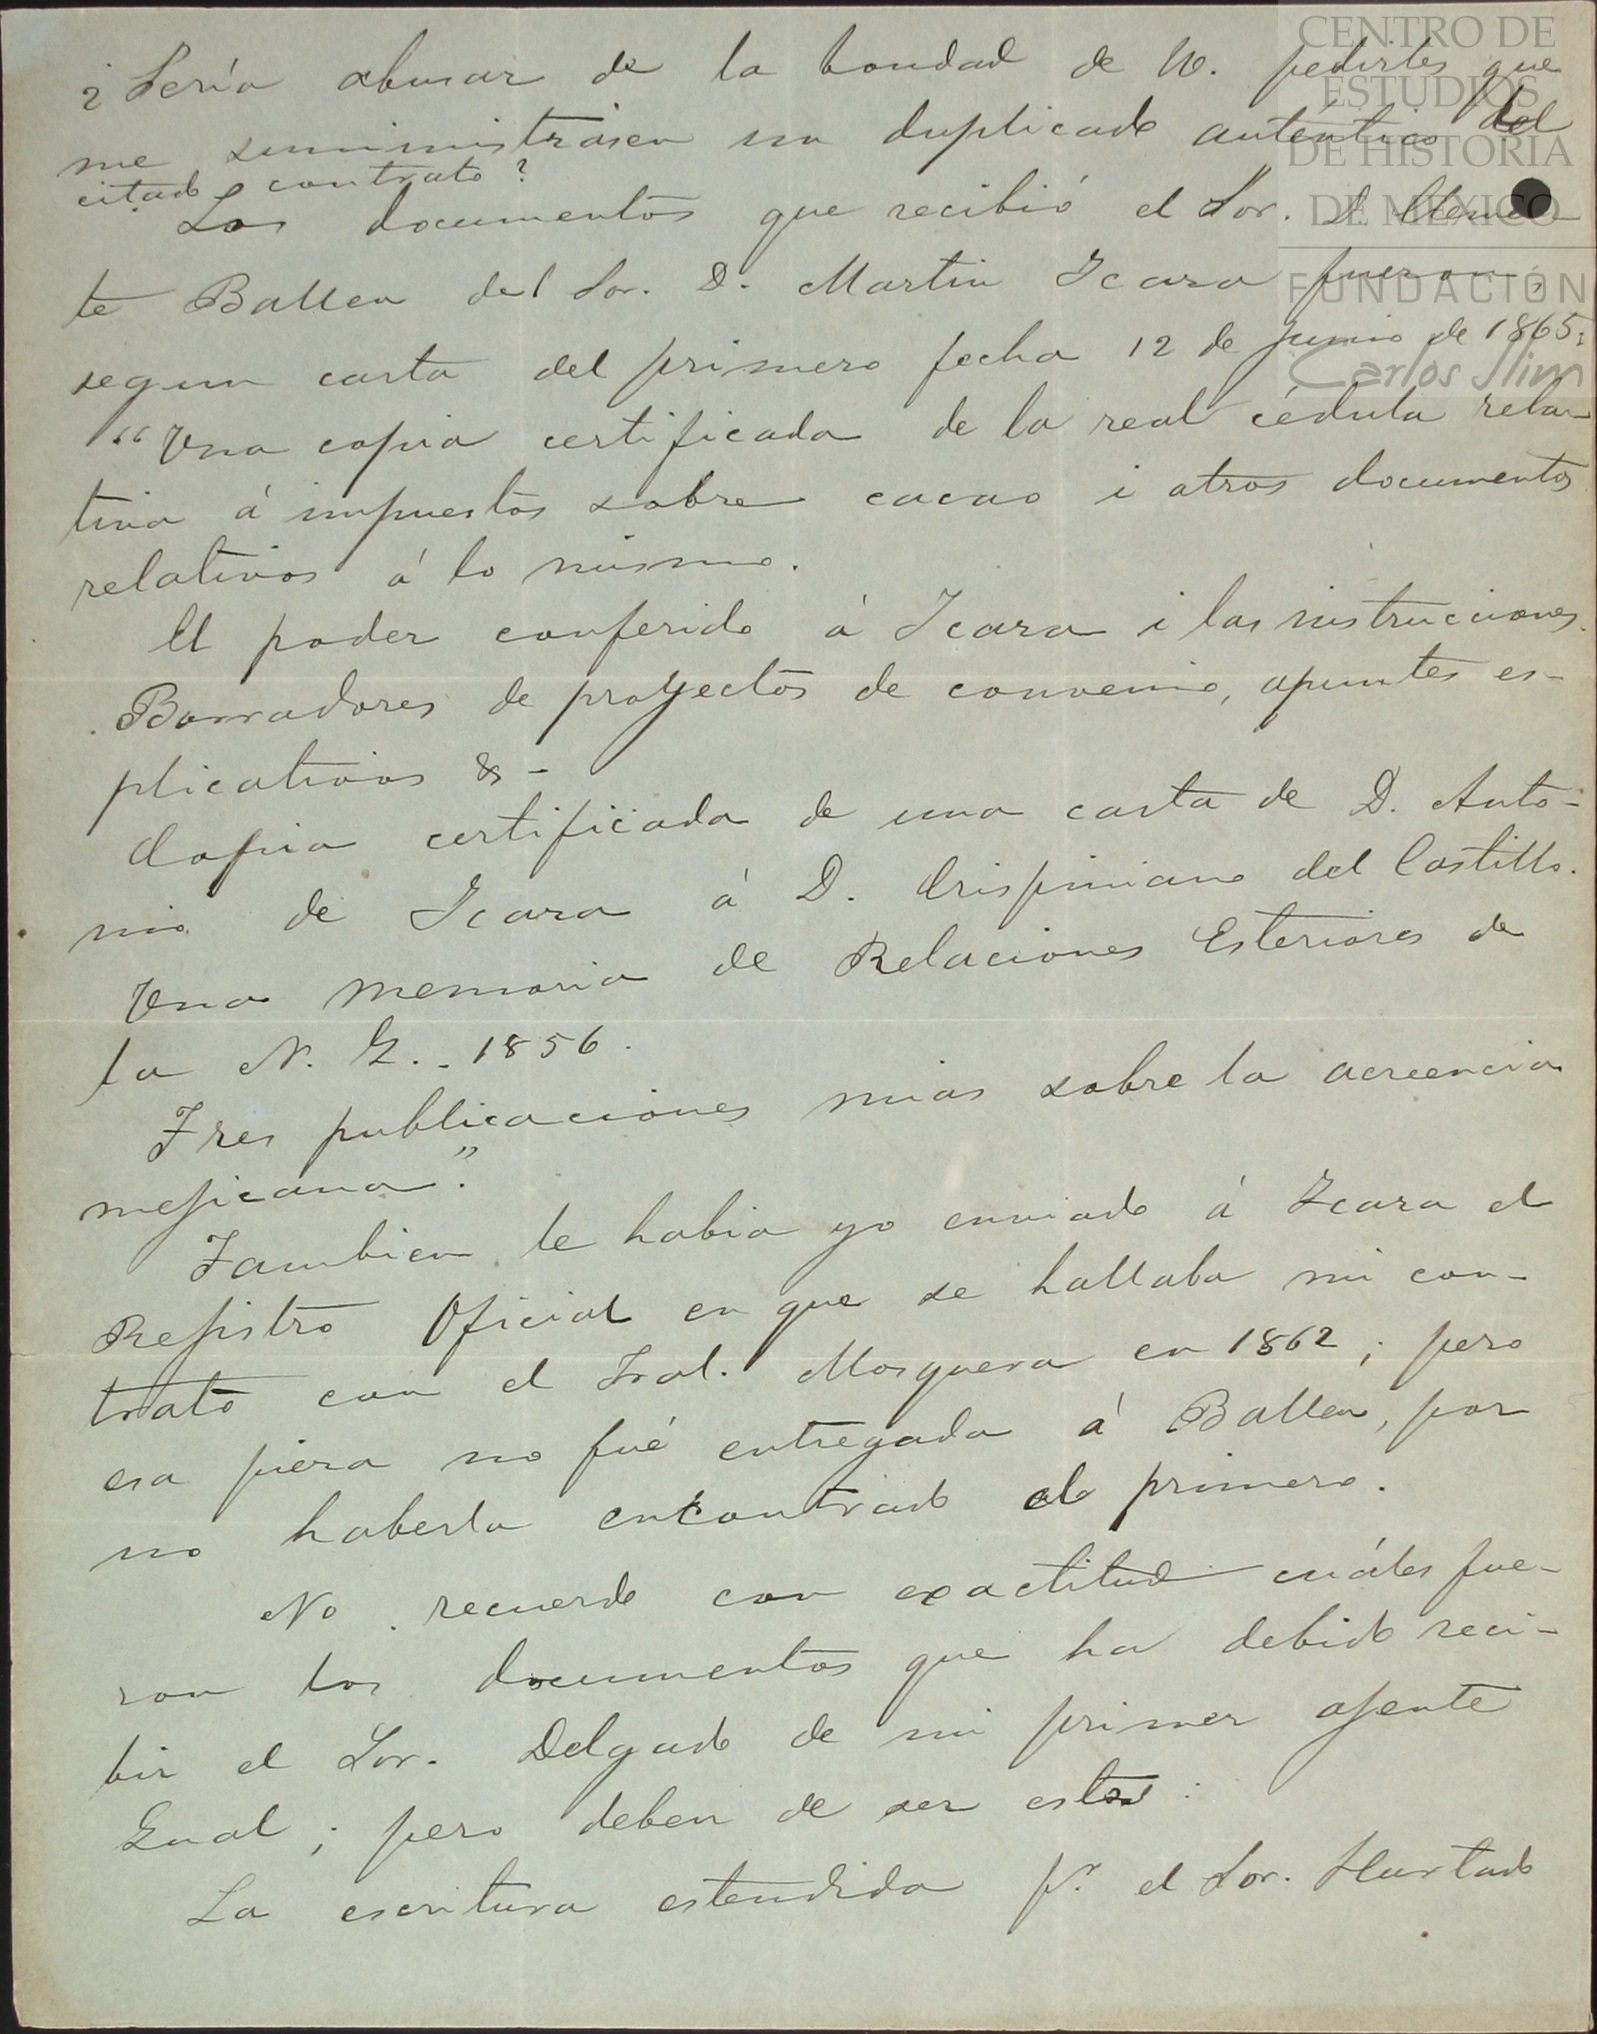 ¿Sería abusar de la bondad de U. pedirles que
me suministrasen un duplicado auténtico del
citado contrato?
Los documentos que recibió el Sor. D. Clemen
te Ballen del Sor. D. Martin Icaza fueron,
segun carta del primero fecha 12 de junio de 1865:
"Una copia certificada de la real cédula rela-
tiva á impuestos sobre cacao i otros documentos
relativos á lo mismo.
El poder conferido á Icaza i las instrucciones.
Borradores de proyectos de convenio, apuntes es-
plicativos &-
Copia certificada de una carta de D. Anto-
nio de Icaza á D. Crispiniano del Castillo.
Una memoria de Relaciones Esteriores de
la N. G.. 1856.
Tres publicaciones mias sobre la acreencia
mejicana".
Tambien le habia yo enviado á Icaza el
Rejistro Oficial en que se hallaba mi con-
trato con el Gral. Mosquera en 1862; pero
esa pieza no fué entregada á Ballen, por
no haberla encontrado el primero.
No recuerdo con exactitud cuáles fue-
ron los documentos que ha debido reci-
bir el Sor. Delgado de mi primer ajente
Gual; pero deben de ser estos:
La escritura estendida pr. el Sor. Hurtado
CENTRO DE
ESTUDIOS
DE HISTORIA
DE MÉXICO
FUNDACIÓN
Carlos Slim